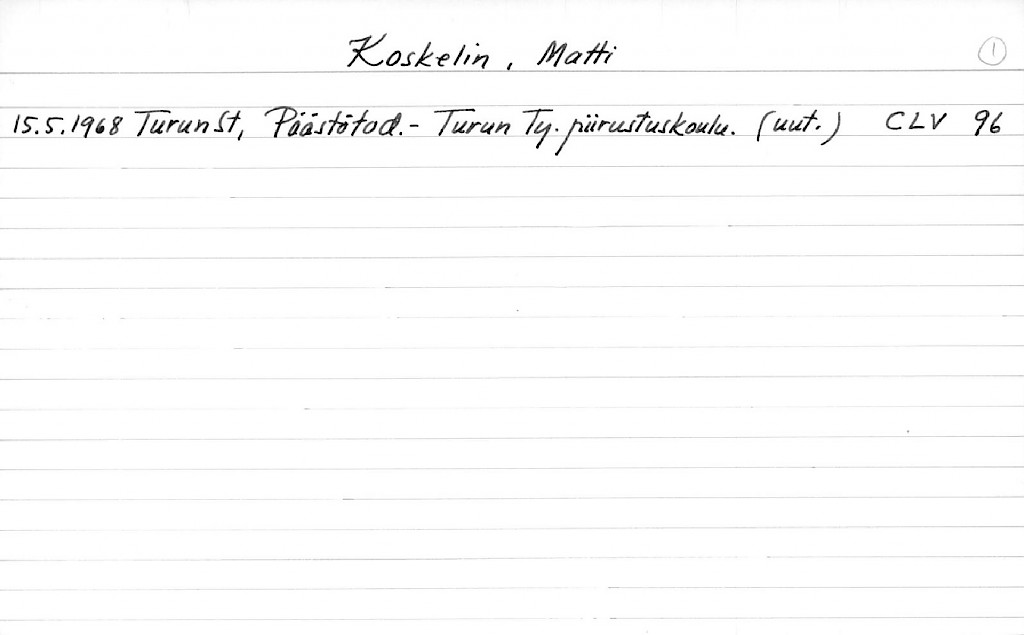 Koskelin, Matti 1
15.5.1968 TurunSt, Päästötod.- Turun Ty. piirustuskoulu. (uut.) CLV 96